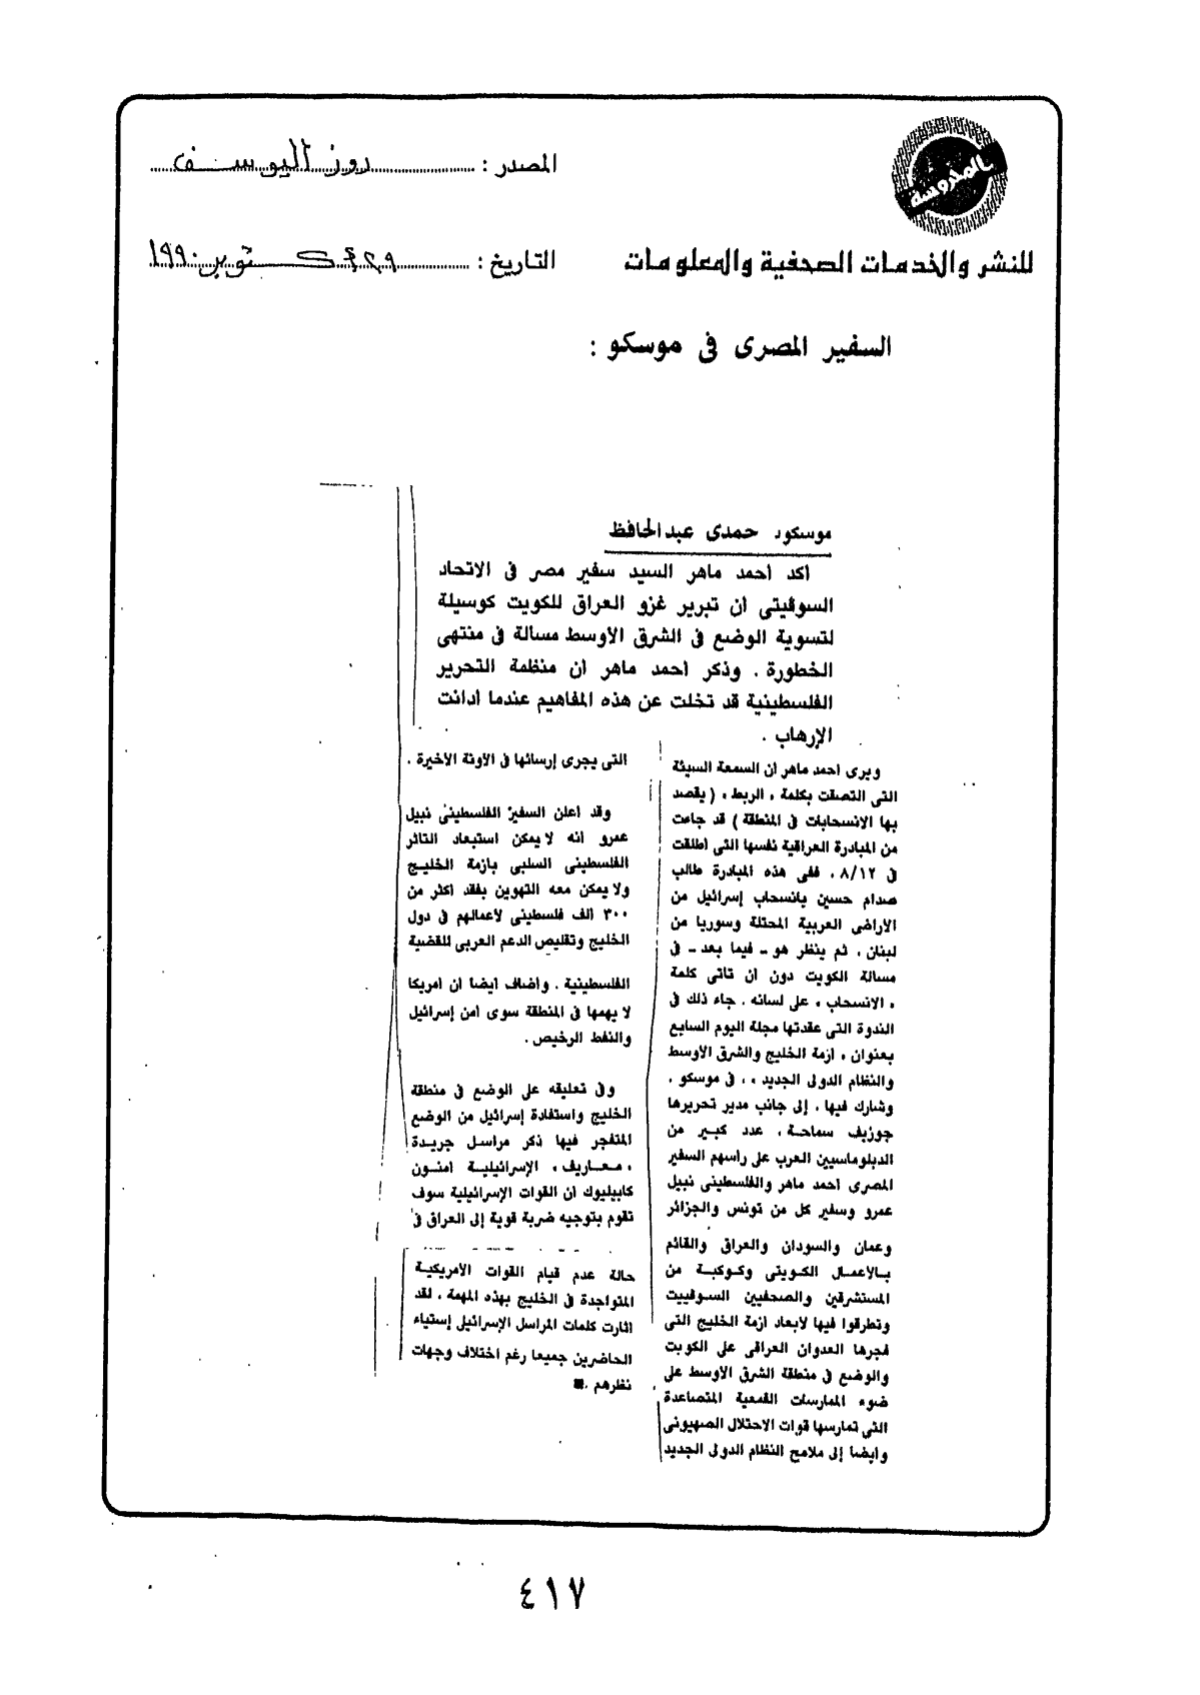 المصدر : روز اليوسف
المحروسة
للنشر والخدمات الصحفية والمعلومات
التاريخ : ٢٩ أكتوبر ١٩٩٠
السفير المصرى فى موسكو :
موسكود حمدى عبدالحافظ
أكد أحمد ماهر السيد سفير مصر فى الاتحاد
السوڤيتى أن تبرير غزو العراق للكويت كوسيلة
لتسوية الوضع فى الشرق الأوسط مسالة فى منتهى
الخطورة . وذكر أحمد ماهر أن منظمة التحرير
الفلسطينية قد تخلت عن هذه المفاهيم عندما أدانت
الإرهاب .
ويرى أحمد ماهر أن السمعة السيئة
التى التصقت بكلمة « الربط » ( يقصد
بها الانسحابات فى المنطقة ) قد جاءت
من المبادرة العراقية نفسها التى أطلقت
فى ٨/١٢ . ففى هذه المبادرة طالب
صدام حسين بانسحاب إسرائيل من
الأراضى العربية المحتلة وسوريا من
لبنان ، ثم ينظر هو ـ فيما بعد ـ فى
مسالة الكويت دون أن تأتى كلمة
« الانسحاب » على لسانه . جاء ذلك فى
الندوة التى عقدتها مجلة اليوم السابع
بعنوان « أزمة الخليج والشرق الأوسط
والنظام الدولى الجديد » ، فى موسكو .
وشارك فيها ، إلى جانب مدير تحريرها
جوزيف سماحة ، عدد كبير من
الدبلوماسيين العرب على رأسهم السفير
المصرى أحمد ماهر والفلسطينى نبيل
عمرو وسفير كل من تونس والجزائر
وعمان والسودان والعراق والقائم
بالأعمال الكويتى وكوكبة من
المستشرقين والصحفيين السوفييت
وتطرقوا فيها لأبعاد أزمة الخليج التى
فجرها العدوان العراقى على الكويت
والوضع فى منطقة الشرق الأوسط على
ضوء الممارسات القمعية المتصاعدة
التى تمارسها قوات الاحتلال الصهيونى
وأيضا إلى ملامح النظام الدولى الجديد
التى يجرى إرسائها فى الآونة الأخيرة .
وقد أعلن السفير الفلسطينى نبيل
عمرو أنه لا يمكن استبعاد التأثر
الفلسطينى السلبى بأزمة الخليج
ولا يمكن معه التهوين بفقد أكثر من
٣٠٠ ألف فلسطينى لأعمالهم فى دول
الخليج وتقليص الدعم العربى للقضية
الفلسطينية . وأضاف أيضا أن أمريكا
لا يهمها فى المنطقة سوى أمن إسرائيل
والنفط الرخيص .
وفى تعليقه على الوضع فى منطقة
الخليج واستفادة إسرائيل من الوضع
المتفجر فيها ذكر مراسل جريدة
« معاريف » الإسرائيلية أمنون
كابيليوك أن القوات الإسرائيلية سوف
تقوم بتوجيه ضربة قوية إلى العراق فى
حالة عدم قيام القوات الأمريكية
المتواجدة فى الخليج بهذه المهمة . لقد
أثارت كلمات المراسل الإسرائيلى إستياء
الحاضرين جميعا رغم اختلاف وجهات
نظرهم . ■
٤١٧